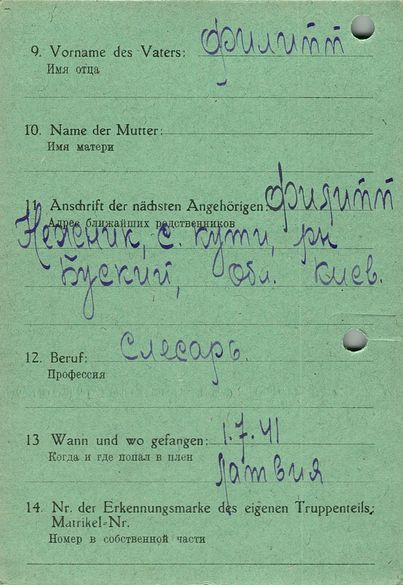 9. Vorname des Vaters: Филипп
Имя отца
10. Name der Mutter:
Имя матери
11. Anschrift der nächsten Angehörigen: Филипп
Адрес ближайших родственников
с. кути, рн
Буский, обл. Киев.
12. Beruf: Слесарь.
Профессия
13 Wann und wo gefangen: 1.7.41
Когда и где попал в плен
Латвия
14. Nr. der Erkennungsmarke des eigenen Truppenteils,
Matrikel-Nr.
Номер в собственной части